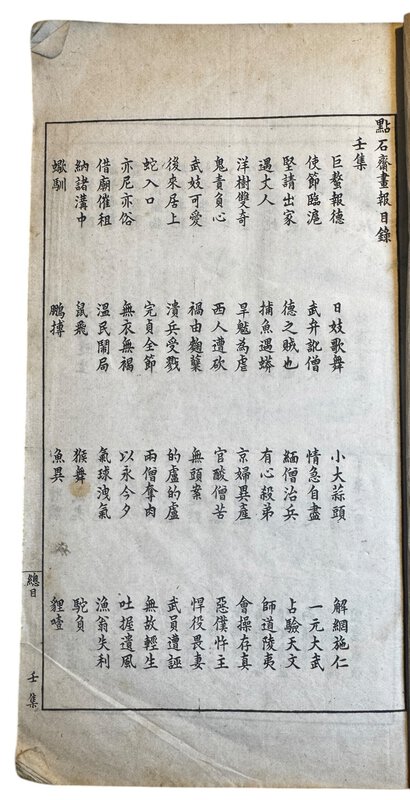 點石齋畫報目錄
壬集
巨螯報德 日妓歌舞 小大蒜頭 解網施仁
使節臨滬 武弁訛僧 情急自盡 一元大武
堅請出家 德之賊也 緬僧治兵 占驗天文
遇丈人 捕魚遇蟒 有心殺弟 師道陵夷
洋樹雙奇 旱魃為虐 京婦異產 會操存真
鬼責負心 西人遭砍 官酸僧苦 惡僕忤主
武妓可愛 禍由麴糵 無頭案 悍役畏妻
後來居上 潰兵受戮 的盧的盧 武員遭誣
蛇入口 完貞全節 兩僧奪肉 無故輕生
亦尼亦俗 無衣無褐 以永今夕 吐握遺風
借廟催租 溫民鬧局 氣球洩氣 漁翁失利
納諸溝中 鼠飛 猴舞 駝負
蠍馴 鵬摶 魚異 貍噎
總目
壬集